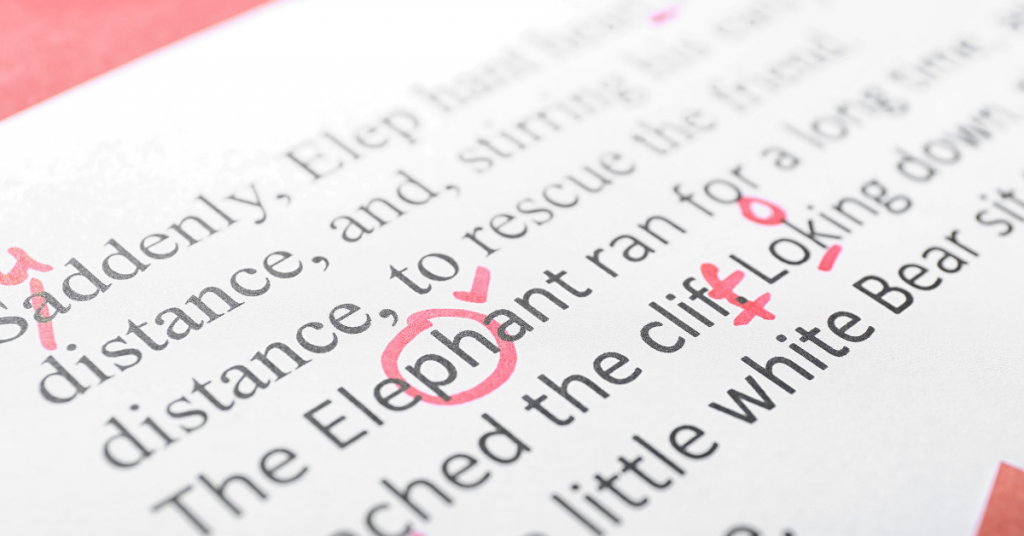 u
Saddenly, Elep hant
distance, and, stirring his
distance, to rescue the friend
The Elephant ran for a long time,
o
f
ached the clif. Loking down,
little white Bear sit